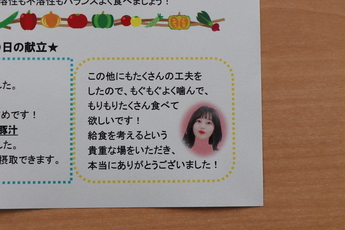 溶性も不溶性もバランスよく食べましょう！
日の献立★
した。
めです！
豚汁
した。
摂取できます。
この他にもたくさんの工夫を
したので、もぐもぐよく噛んで、
もりもりたくさん食べて
欲しいです！
給食を考えるという
貴重な場をいただき、
本当にありがとうございました！